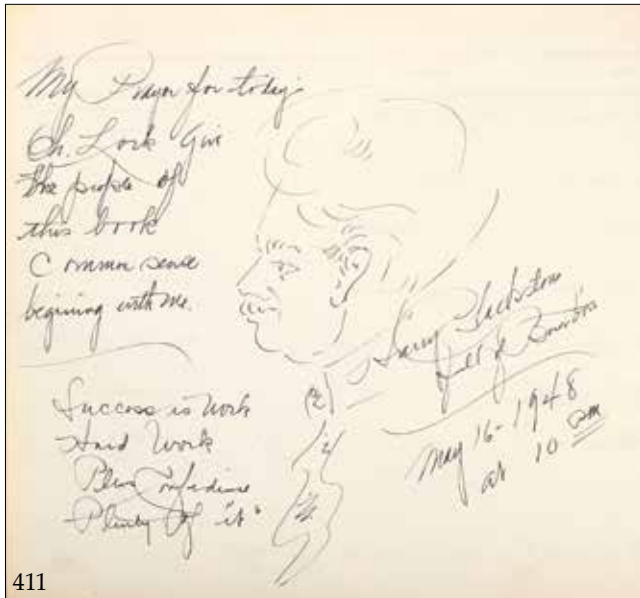 My Prayer for today
Oh. Lord Give
the people of
this book
Common sense
begining with me.
Success is Work
Hard Work
Plus Confidence
Plenty Of "it"
Harry Blackstone
full of Bourbon
May 16-1948
at 10 am
411